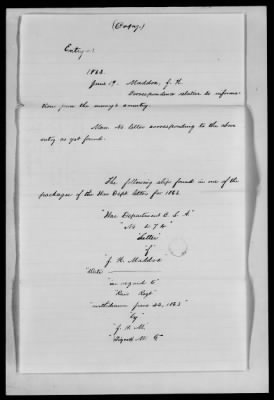 (Copy.)
Entry:
1863.
June 19. Maddox, J. H.
Correspondence relative to informa-
tion from the enemy's country.
letter corresponding to the above
entry as yet found.
The following slip found in one of the
packages of the War Dept. letters for 1863.
"War Department C. S. A."
"Letter"
"of"
"J. H. Maddox"
"Date
"in regard to"
"withdrawn June 22, 1863"
"by"
"J. A. M."
"Signed